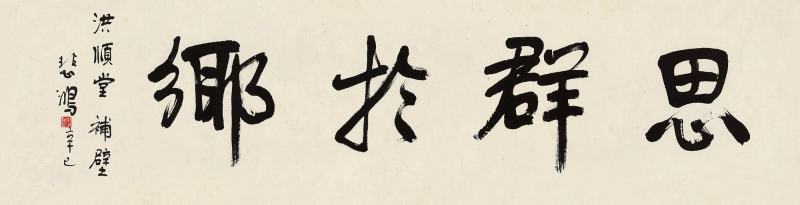 思群於鄉
洪順堂 補壁
悲鴻 辛巳